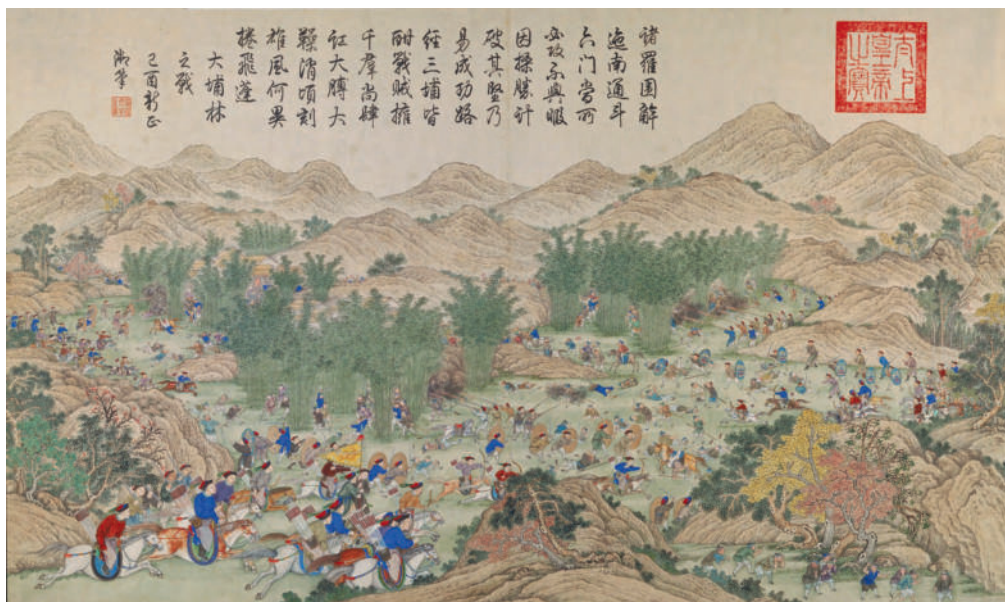 太上
皇帝
之寶
諸羅圍解
迤南通斗
六門當所
必攻不與暇
因操勝計
破其堅乃
易成功路
經三埔皆
酣戰賊擁
千群尚肆
訌大膊大
消頃刻
雄風何異
捲飛蓬
大埔林
之戰
己酉新正
御筆